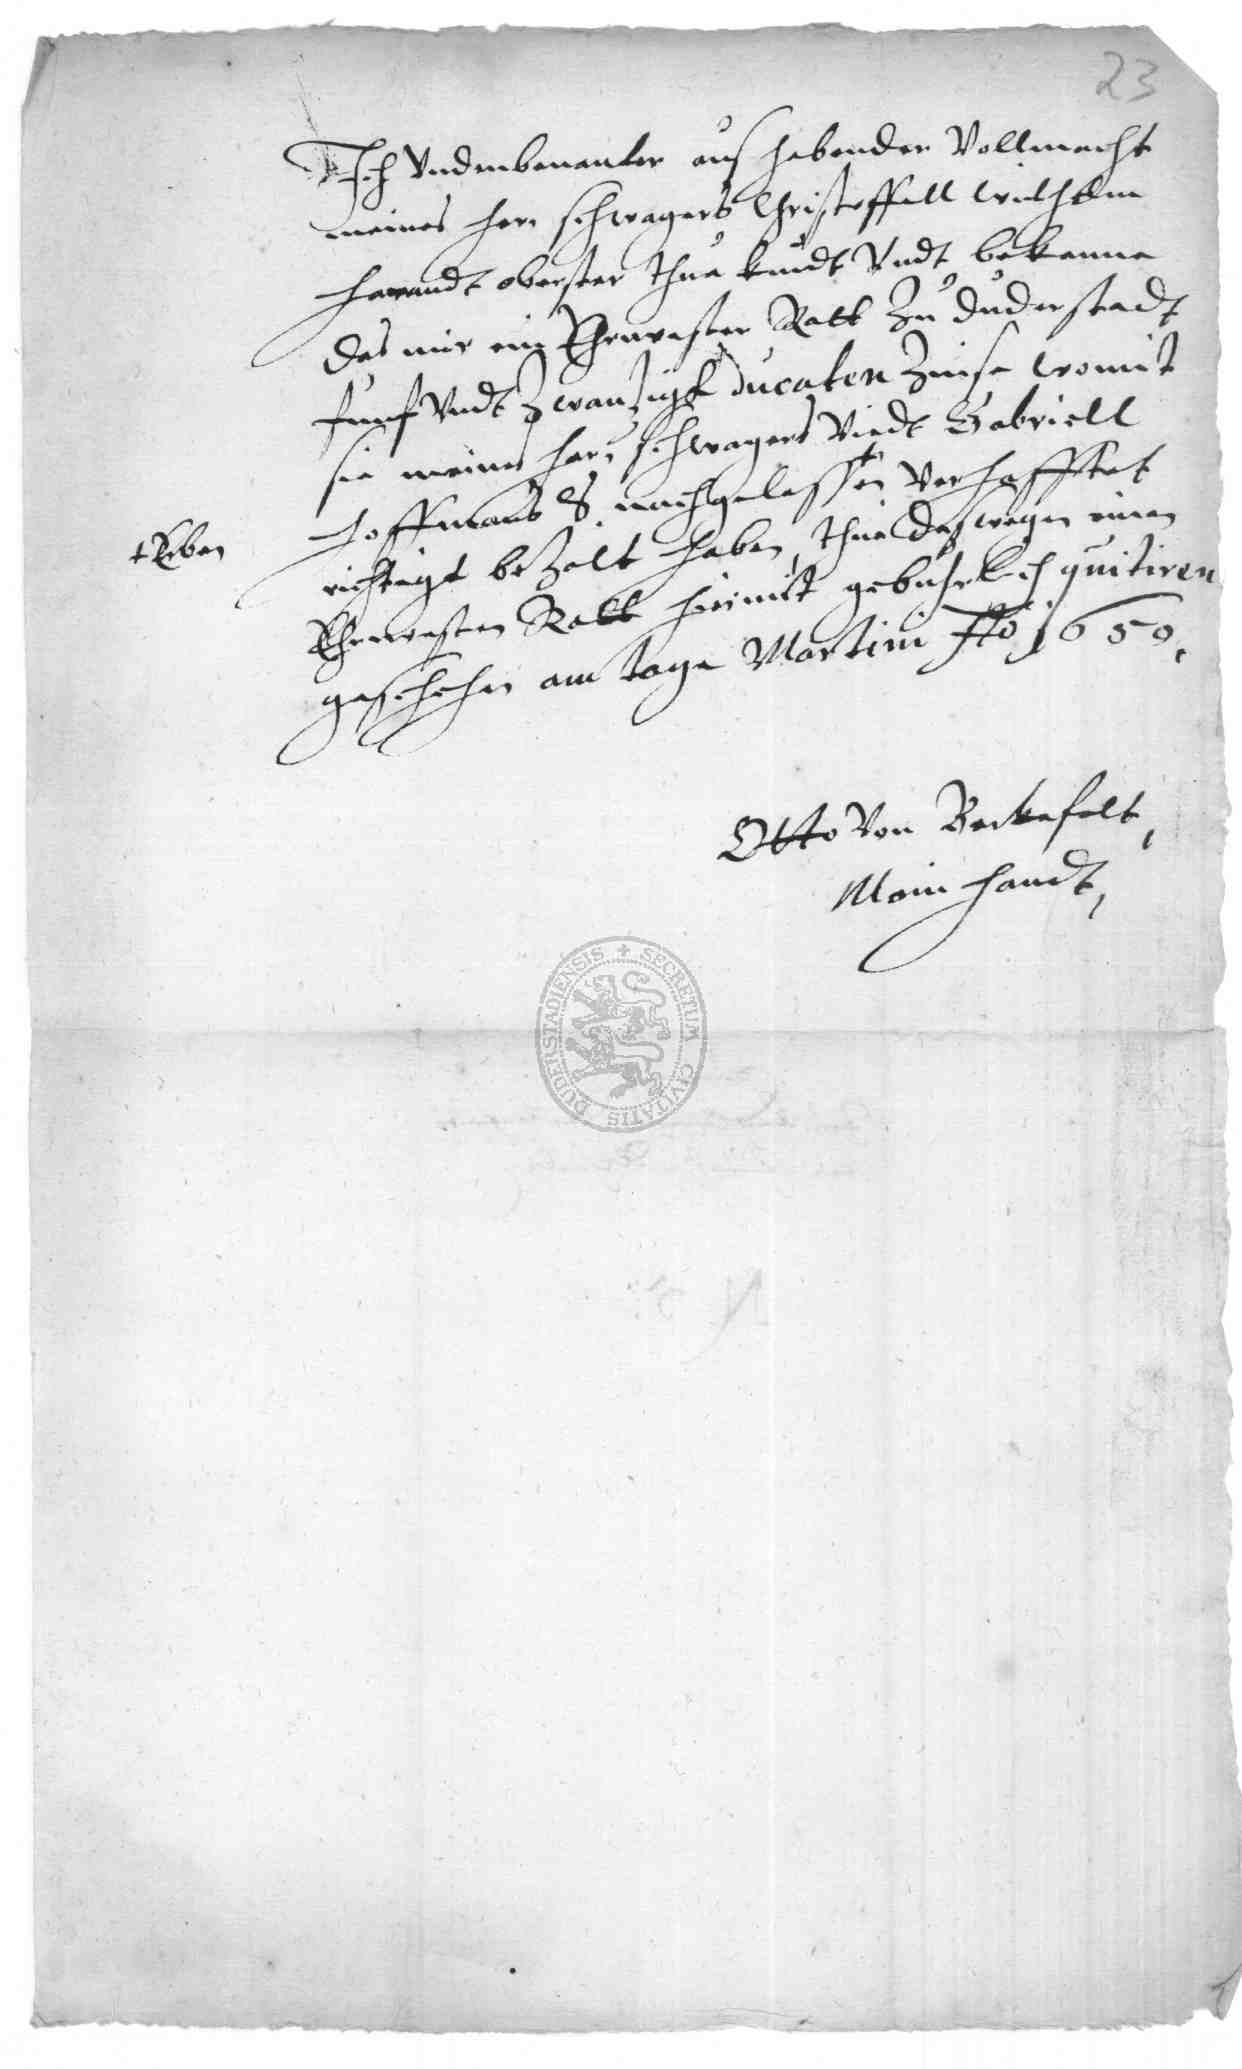 23
Ich Undenbenanter aus habender Vollmacht
meines hern schwagers Christoffell wilhelm
harandt oberster thue kundt Undt bekenne
das mir ein Ehrnvester Ratt Zu duderstadt
funf Undt Zwanzigk Ducaten Zinse womit
sie meines hern schwagers Undt Gabriell
Hoffmans S. nachgelassen + Verhafftet
+ Erben
richtigk bezalt haben, thue deswegen einen
Ehrnvesten Ratt hirmit gebuhrlich quitiren
geschehen am tage Martini Ao 1650,
Otto Von Berkefelt,
Mein handt,
SECRETUM CIVITATIS DUDERSTADIENSIS